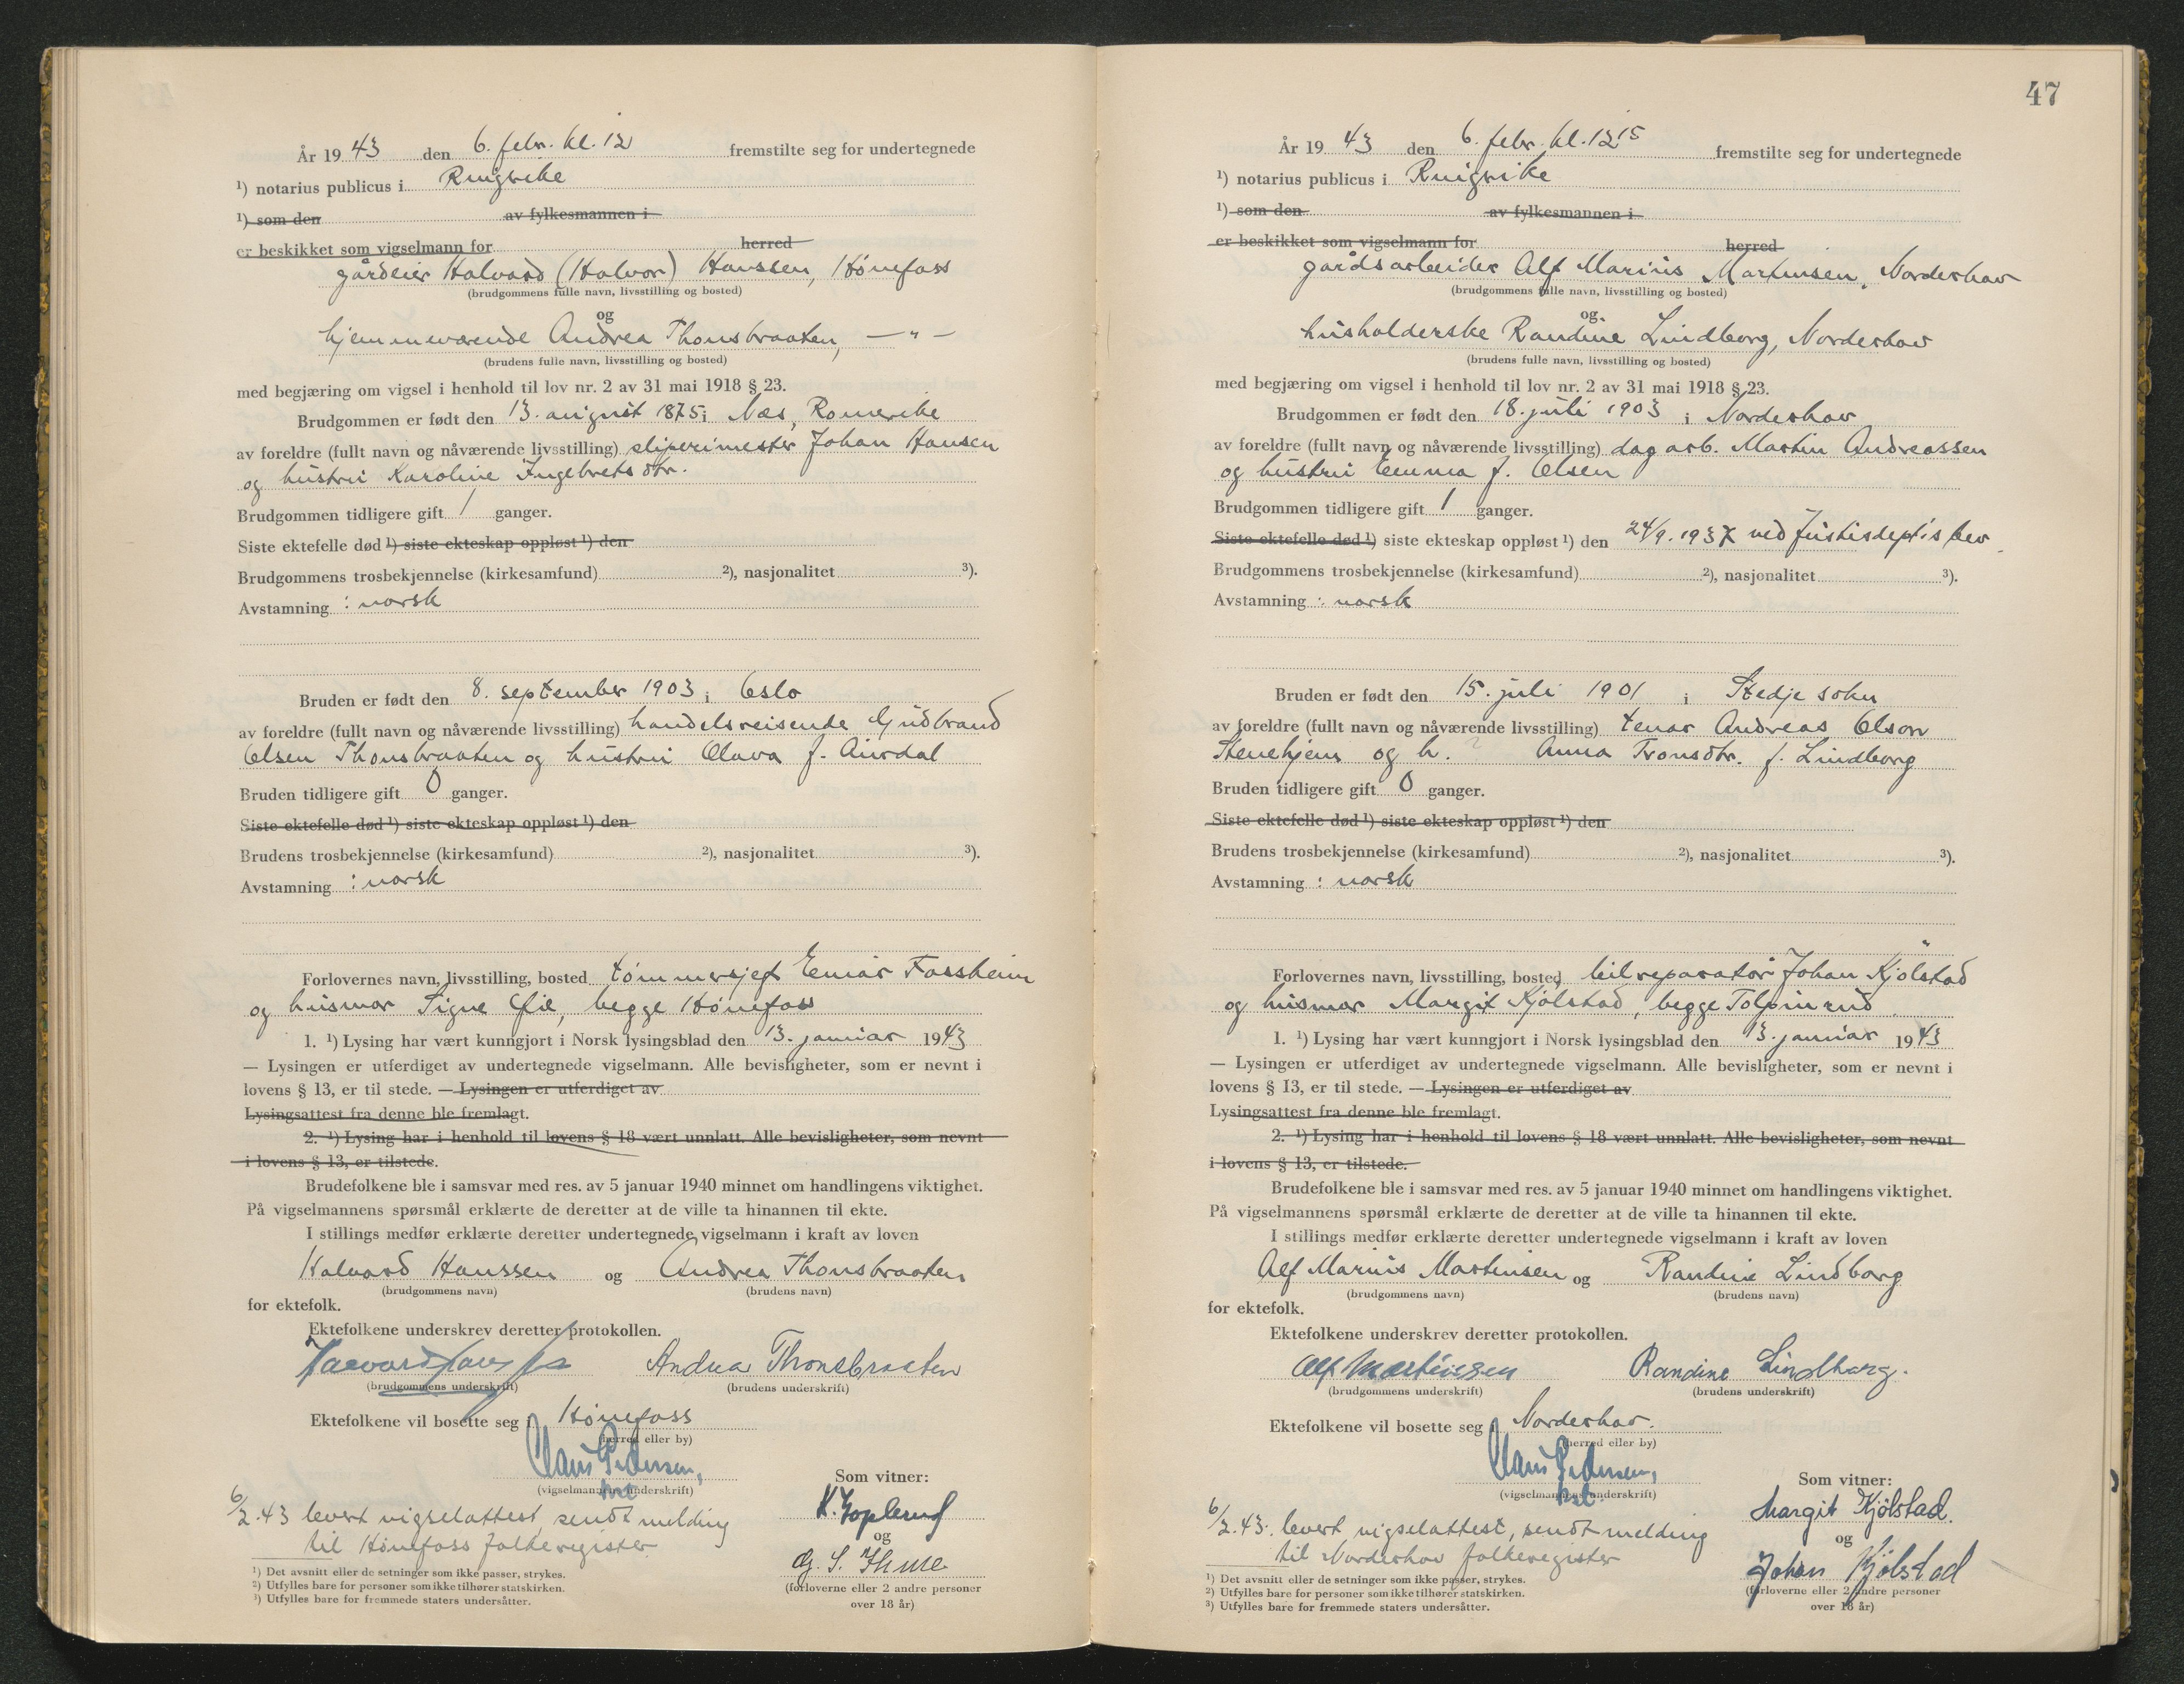 År 19 43 den 6. febr. kl. 12 fremstilte seg for undertegnede
¹) notarius publicus i Ringerike
¹) som den av fylkesmannen i
er beskikket som vigselmann for herred
gårdeier Halvard (Halvor) Hanssen, Hønefoss
(brudgommens fulle navn, livsstilling og bosted)
og
hjemmeværende Andrea Thonsbraaten, — " —
(brudens fulle navn, livsstilling og bosted)
med begjæring om vigsel i henhold til lov nr. 2 av 31 mai 1918 § 23.
Brudgommen er født den 13. august 1875 i Nes, Romerike
av foreldre (fullt navn og nåværende livsstilling) sliperimester Johan Hansen
og hustru Karoline Ingebretsdtr.
Brudgommen tidligere gift 1 ganger.
Siste ektefelle død ¹) siste ekteskap oppløst ¹) den
Brudgommens trosbekjennelse (kirkesamfund) ²), nasjonalitet ³).
Avstamning : norsk
Bruden er født den 8. september 1903 i Oslo
av foreldre (fullt navn og nåværende livsstilling) handelsreisende Gudbrand
Olsen Thonsbraaten og hustru Olava f. Aurdal
Bruden tidligere gift 0 ganger.
Siste ektefelle død ¹) siste ekteskap oppløst ¹) den
Brudens trosbekjennelse (kirkesamfund) ²), nasjonalitet ³).
Avstamning : norsk
Forlovernes navn, livsstilling, bosted tømmersjef Einar Fossheim
og husmor Signe Lie, begge Hønefoss
1. ¹) Lysing har vært kunngjort i Norsk lysingsblad den 13. januar 1943
— Lysingen er utferdiget av undertegnede vigselmann. Alle bevisligheter, som er nevnt i
lovens § 13, er til stede. — Lysingen er utferdiget av
Lysingsattest fra denne ble fremlagt.
2. ¹) Lysing har i henhold til lovens § 18 vært unnlatt. Alle bevisligheter, som nevnt
i lovens § 13, er tilstede.
Brudefolkene ble i samsvar med res. av 5 januar 1940 minnet om handlingens viktighet.
På vigselmannens spørsmål erklærte de deretter at de ville ta hinannen til ekte.
I stillings medfør erklærte deretter undertegnede vigselmann i kraft av loven
Halvard Hanssen og Andrea Thonsbraaten
(brudgommens navn) (brudens navn)
for ektefolk.
Ektefolkene underskrev deretter protokollen.
Andrea Thonsbraaten
(brudgommens underskrift) (brudens underskrift)
Ektefolkene vil bosette seg i Hønefoss
(herred eller by)
Claus Pedersen,
(vigselmannens underskrift)
Som vitner:
K. Goplerud
og
(forloverne eller 2 andre personer
over 18 år)
6/2.43 levert vigselattest, sendt melding
til Hønefoss folkeregister
¹) Det avsnitt eller de setninger som ikke passer, strykes.
²) Utfylles bare for personer som ikke tilhører statskirken.
³) Utfylles bare for fremmede staters undersåtter.
47
År 19 43 den 6. febr. kl. 12¹⁵ fremstilte seg for undertegnede
¹) notarius publicus i Ringerike
¹) som den av fylkesmannen i
er beskikket som vigselmann for herred
gårdsarbeider Alf Marius Martinsen, Norderhov
(brudgommens fulle navn, livsstilling og bosted)
og
husholderske Randine Lindborg, Norderhov
(brudens fulle navn, livsstilling og bosted)
med begjæring om vigsel i henhold til lov nr. 2 av 31 mai 1918 § 23.
Brudgommen er født den 18. juli 1903 i Norderhov
av foreldre (fullt navn og nåværende livsstilling) dag arb. Martin Andreassen
og hustru Emma f. Olsen
Brudgommen tidligere gift 1 ganger.
Siste ektefelle død ¹) siste ekteskap oppløst ¹) den 24/9. 1937 ved Justisdept's bev.
Brudgommens trosbekjennelse (kirkesamfund) ²), nasjonalitet ³).
Avstamning : norsk
Bruden er født den 15. juli 1901 i Stedje sokn
av foreldre (fullt navn og nåværende livsstilling) tenar Andreas Olson
Stenehjem og h. ? Anna Tronsdtr. f. Lindborg
Bruden tidligere gift 0 ganger.
Siste ektefelle død ¹) siste ekteskap oppløst ¹) den
Brudens trosbekjennelse (kirkesamfund) ²), nasjonalitet ³).
Avstamning : norsk
Forlovernes navn, livsstilling, bosted bilreparatør Johan Kjölstad
og husmor Margit Kjölstad, begge Tolpinrud
1. ¹) Lysing har vært kunngjort i Norsk lysingsblad den 13. januar 1943
— Lysingen er utferdiget av undertegnede vigselmann. Alle bevisligheter, som er nevnt i
lovens § 13, er til stede. — Lysingen er utferdiget av
Lysingsattest fra denne ble fremlagt.
2. ¹) Lysing har i henhold til lovens § 18 vært unnlatt. Alle bevisligheter, som nevnt
i lovens § 13, er tilstede.
Brudefolkene ble i samsvar med res. av 5 januar 1940 minnet om handlingens viktighet.
På vigselmannens spørsmål erklærte de deretter at de ville ta hinannen til ekte.
I stillings medfør erklærte deretter undertegnede vigselmann i kraft av loven
Alf Marius Martinsen og Randine Lindborg
(brudgommens navn) (brudens navn)
for ektefolk.
Ektefolkene underskrev deretter protokollen.
Alf Martinsen Randine Lindborg.
(brudgommens underskrift) (brudens underskrift)
Ektefolkene vil bosette seg i Norderhov.
(herred eller by)
Claus Pedersen,
(vigselmannens underskrift)
Som vitner:
Margit Kjölstad.
og
Johan Kjölstad
(forloverne eller 2 andre personer
over 18 år)
6/2.43. levert vigselattest, sendt melding
til Norderhov folkeregister
¹) Det avsnitt eller de setninger som ikke passer, strykes.
²) Utfylles bare for personer som ikke tilhører statskirken.
³) Utfylles bare for fremmede staters undersåtter.